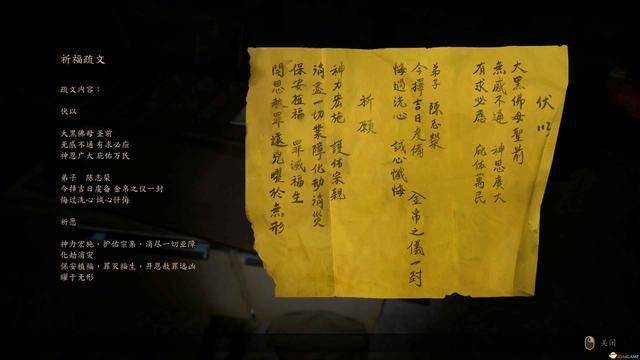 祈福疏文
疏文内容：
伏以
大黑佛母 圣前
无感不通 有求必应
神恩广大 庇佑万民
弟子 陈志荣
今择吉日度备 金帛之仪一封
悔过洗心 诚心忏悔
祈愿
神力宏施，护佑宗亲，消尽一切业障
化劫消灾
保安植福，罪灭福生，开恩赦罪远凶
曜于无形
伏以
大黑佛母聖前
無感不通 神恩廣大
有求必應 庇佑萬民
弟子 陳志榮
今擇吉日度備 金帛之儀一封
悔過洗心 誠心懺悔
祈願
神力宏施 護佑宗親
消盡一切業障化劫消災
保安植福 罪滅福生
開恩赦罪遠兇曜於無形
关闭
3DMGAME